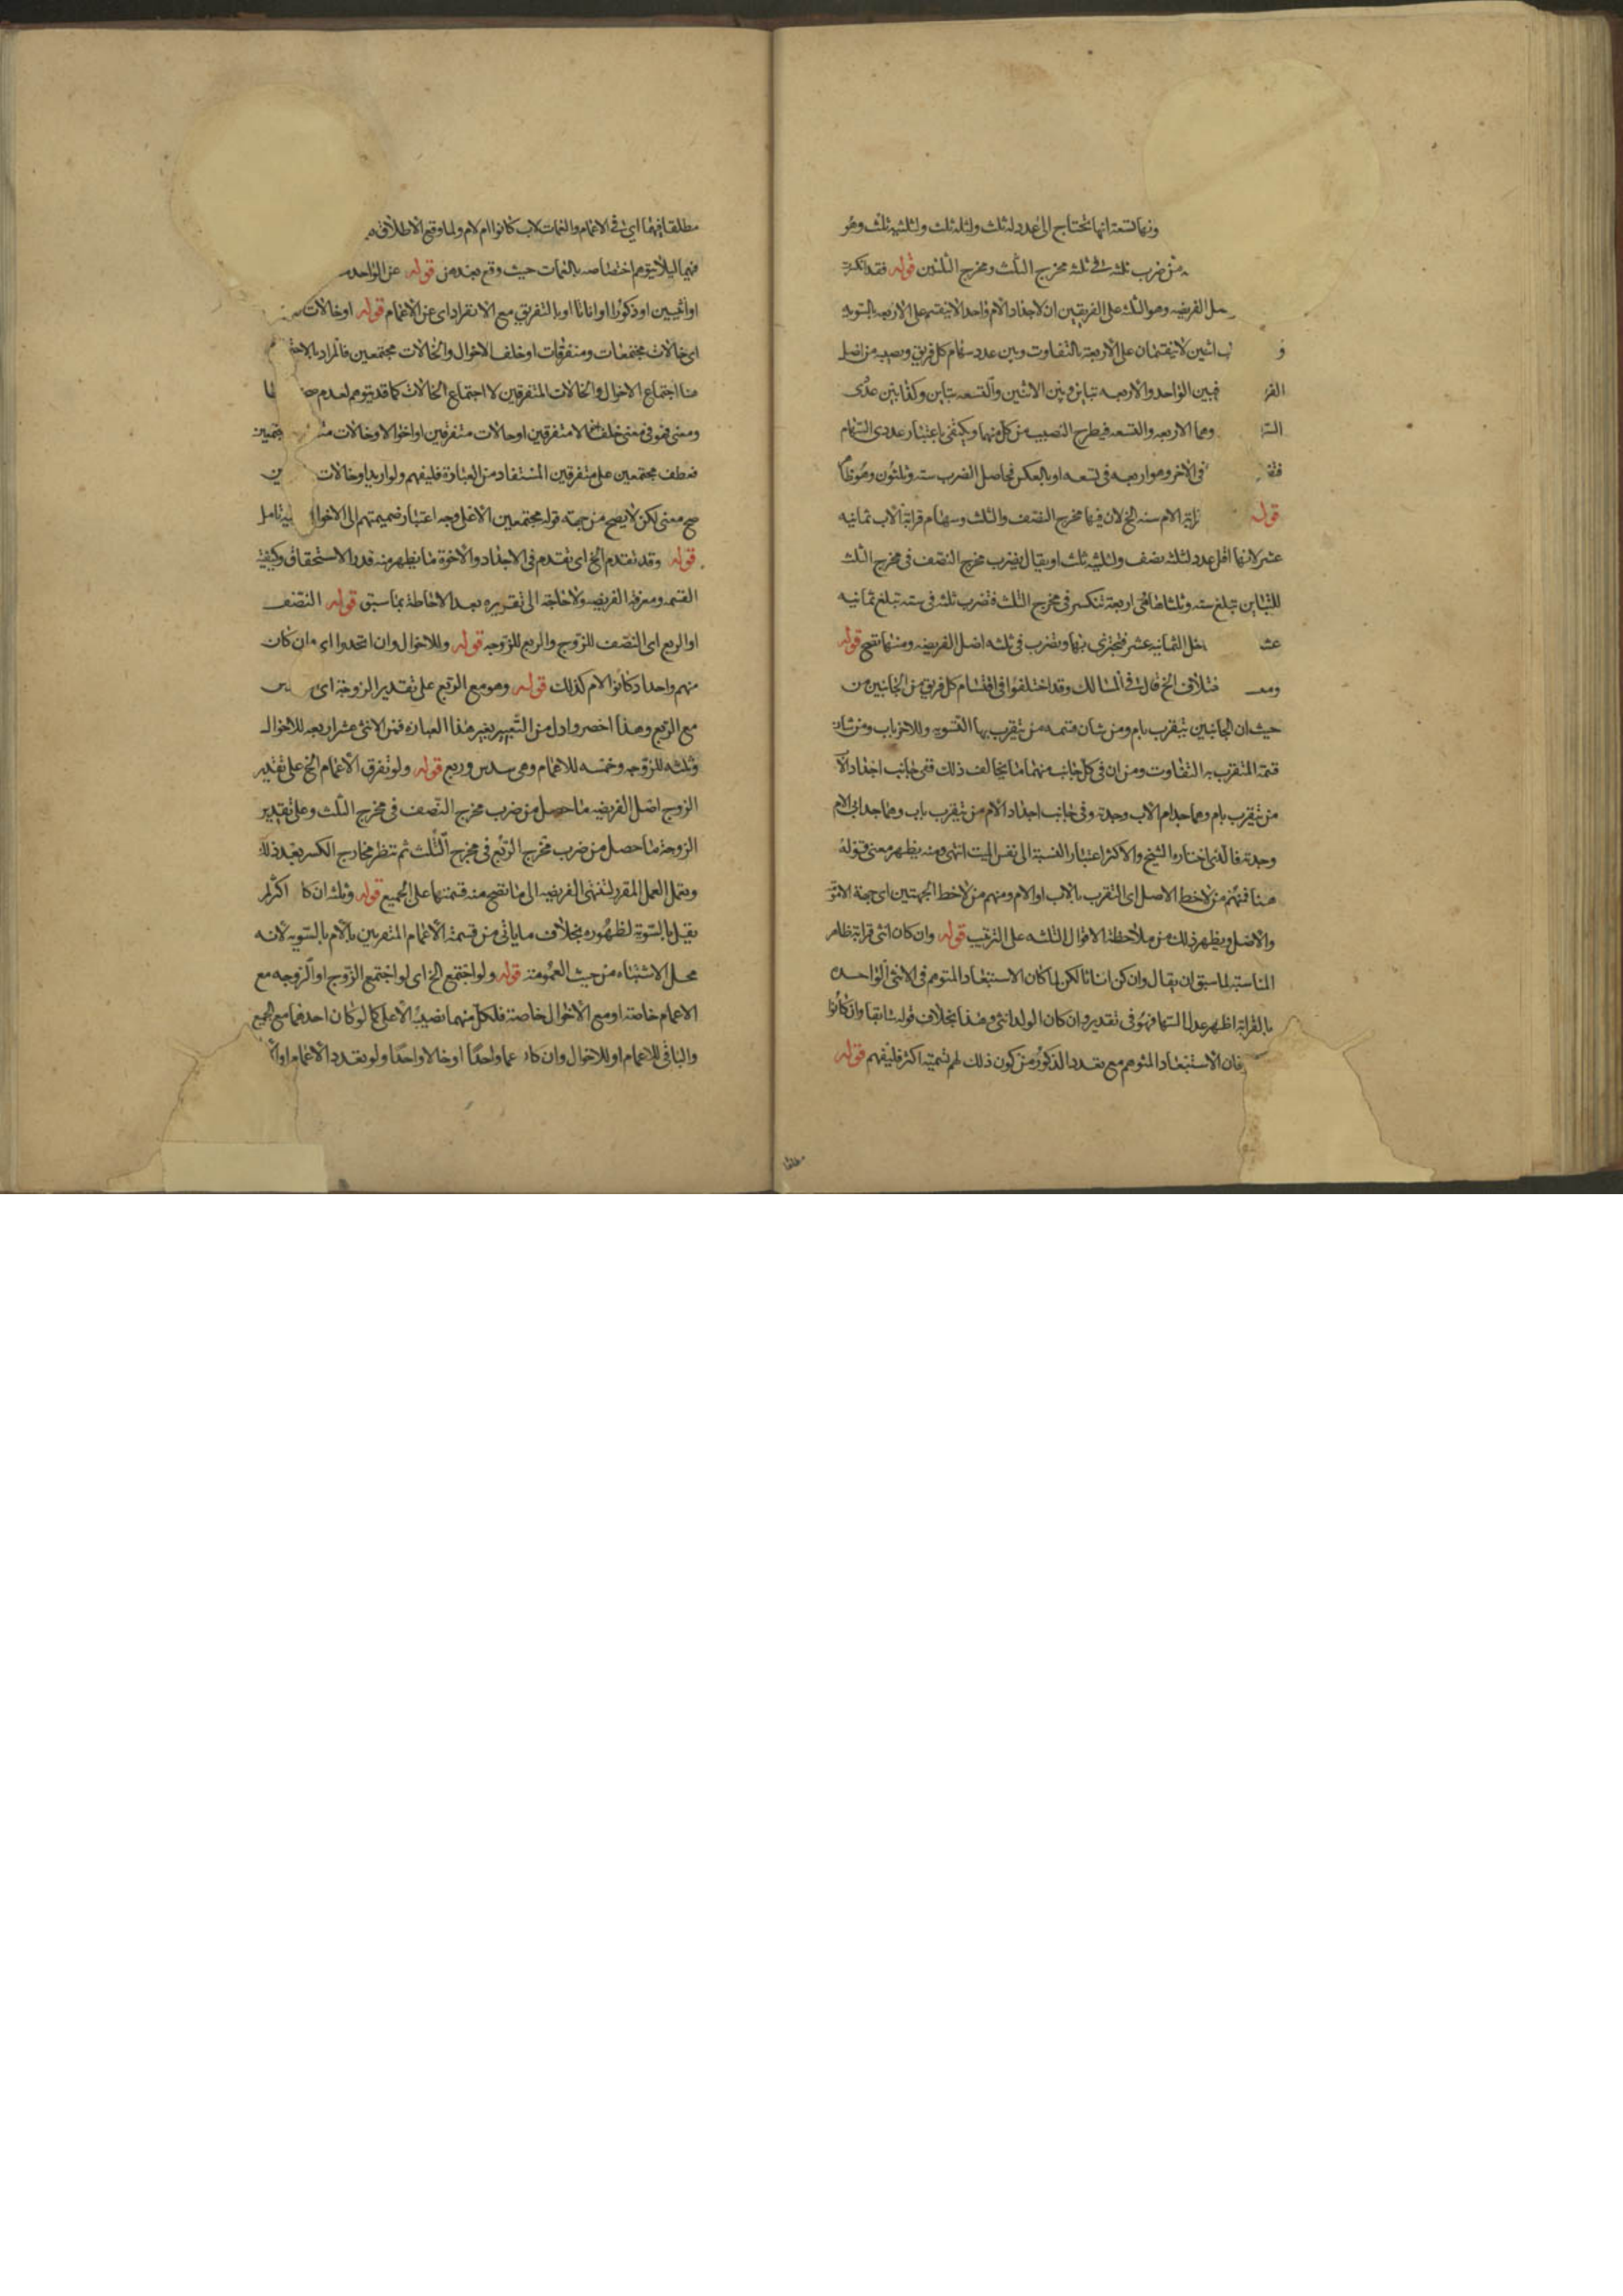 ونها تسعة انها تحتاج الى عدد له ثلث ولثلثه ثلث ولثلثيه ثلث وهو
من ضرب ثلثه في ثلثه مخرج الثلث ومخرج الثلثين قوله فقد انكسرت
الفريضه وهو الثلث على الفريقين لان لاجداد الام واحدا لا ينقسم على الاربعه بالسويه
و اثنين لا ينقسمان على الاربعة بالتفاوت وبين عدد سهام كل فريق ونصيبه من اصل
الفر فبين الواحد والاربعه تباين وبين الاثنين والتسعه تباين وكذا بين عددى
وهما الاربعه والتسعه فيطرح النصيب من كل منهما ويكتفى باعتبار عددى السهام
فى الاخر وهو اربعه فى تسعه او بالعكس فحاصل الضرب سته وثلثون وهو ظاهر
قوله الام سته الخ لان فيها مخرج النصف والثلث وسهام قرابة الاب ثمانيه
عشر لانها اقل عدد لثلثه نصف ولثلثيه ثلث او يقال يضرب مخرج النصف فى مخرج الثلث
للتباين تبلغ سته وثلثاها فهى اربعة تنكسر فى مخرج الثلث فتضرب ثلثه فى سته تبلغ ثمانيه
عش الثمانيه عشر فيجتزى بها وتضرب فى ثلثه اصل الفريضه ومنها تصح قوله
ومع الخ قال فى المسالك وقد اختلفوا فى اقتسام كل فريق من الجانبين من
حيث ان الجانبين يتقرب بام ومن شان قسمه من يتقرب بها التسويه وللاخر باب ومن شان
قسمة المتقرب به التفاوت ومن ان فى كل جانب منهما ما يخالف ذلك ففى جانب اجداد الاب
من يتقرب بام وهما جد ام الاب وجدته وفى جانب اجداد الام من يتقرب باب وهما جد ابى الام
وجدته فالذى اختاره الشيخ والاكثر اعتبار النسبة الى نفس الميت انتهى ومنه يظهر معنى قوله
هنا فمنهم من لاحظ الاصل اى التقرب بالاب او الام ومنهم من لاحظ الجهتين اى جهة
والاصل ويظهر ذلك من ملاحظة الاقوال الثلثه على الترتيب قوله وان كان انثى قرابة ظاهر
المناسبة لما سبق ان يقال وان كن اناثا لكن لما كان الاستبعاد المتوهم فى الانثى الواحده
بالقرابة اظهر عدل اليها فهو فى تقدير وان كان الولد انثى وهذا بخلاف قوله سابقا وان كانوا
فان الاستبعاد المتوهم مع تعدد الذكور من كون ذلك لهم تتمته اكثر فليفهم قوله
مطلقا
مطلقا فيهما اى فى الاعمام والعمات لاب كانوا ام لام ولما وقع الاطلاق
فيها ليلا يتوهم اختصاصه بالعمات حيث وقع بعد من قوله عن الواحد
او انثيين او ذكورا او اناثا او بالتفريق مع الانفراد اى عن الاعمام قوله او خالات
اى خالات مجتمعات ومتفرقات او خلف الاخوال والخالات مجتمعين فالمراد
هنا اجتماع الاخوال والخالات المتفرقين لا اجتماع الخالات كما قد يتوهم لعدم
ومعنى فهو فى معنى خلف اخوالا متفرقين او خالات متفرقين او اخوالا وخالات
فعطف مجتمعين على متفرقين المستفاد من العبارة فليفهم ولو اريد او خالات
صح معنى لكن لا يصح من جهة قوله مجتمعين الا على وجه اعتبار ضميمتهم الى الاخوال فتامل
قوله وقد تقدم الخ اى تقدم فى الاجداد والاخوة ما يظهر منه قدر الاستحقاق وكيفية
القسمه ومعرفة الفريضه ولا حاجة الى تقريره بعد الاحاطة بما سبق قوله النصف
او الربع اى النصف للزوج والربع للزوجه قوله وللاخوال وان اتحدوا اى وان كان
منهم واحدا وكانوا لام كذلك قوله وهو مع الربع على تقدير الزوجة اى
مع الربع وهذا اخصر وادل من التعبير بغير هذا العباره فمن الاثنى عشر اربعه للاخوال
وثلثه للزوجه وخمسه للاعمام وهى سدس وربع قوله ولو تفرق الاعمام الخ على تقدير
الزوج اصل الفريضه ما حصل من ضرب مخرج النصف فى مخرج الثلث وعلى تقدير
الزوجة ما حصل من ضرب مخرج الربع فى مخرج الثلث ثم تنظر مخارج الكسر بعد ذلك
ويعمل العمل المقرر لتنتهى الفريضه الى ما تصح منه قسمتها على الجميع قوله وثلثه ان كا اكثر لم
يقل بالسوية لظهوره بخلاف ما ياتى من قسمة الاعمام المتقربين بالام بالسويه لانه
محل الاشتباه من حيث العمومة قوله ولو اجتمع الخ اى لو اجتمع الزوج او الزوجه مع
الاعمام خاصة او مع الاخوال خاصة فلكل منهما نصيبه الاعلى كما لو كان احدهما مع الجميع
والباقى للاعمام او للاخوال وان كان عما واحدا او خالا واحدا ولو تعدد الاعمام